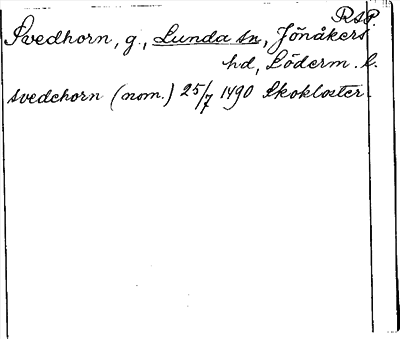 RSP
Svedhorn, g., Lunda sn, Jönåkers
hd, Söderm. l.
svedehorn (nom.) 25/7 1490 Skokloster